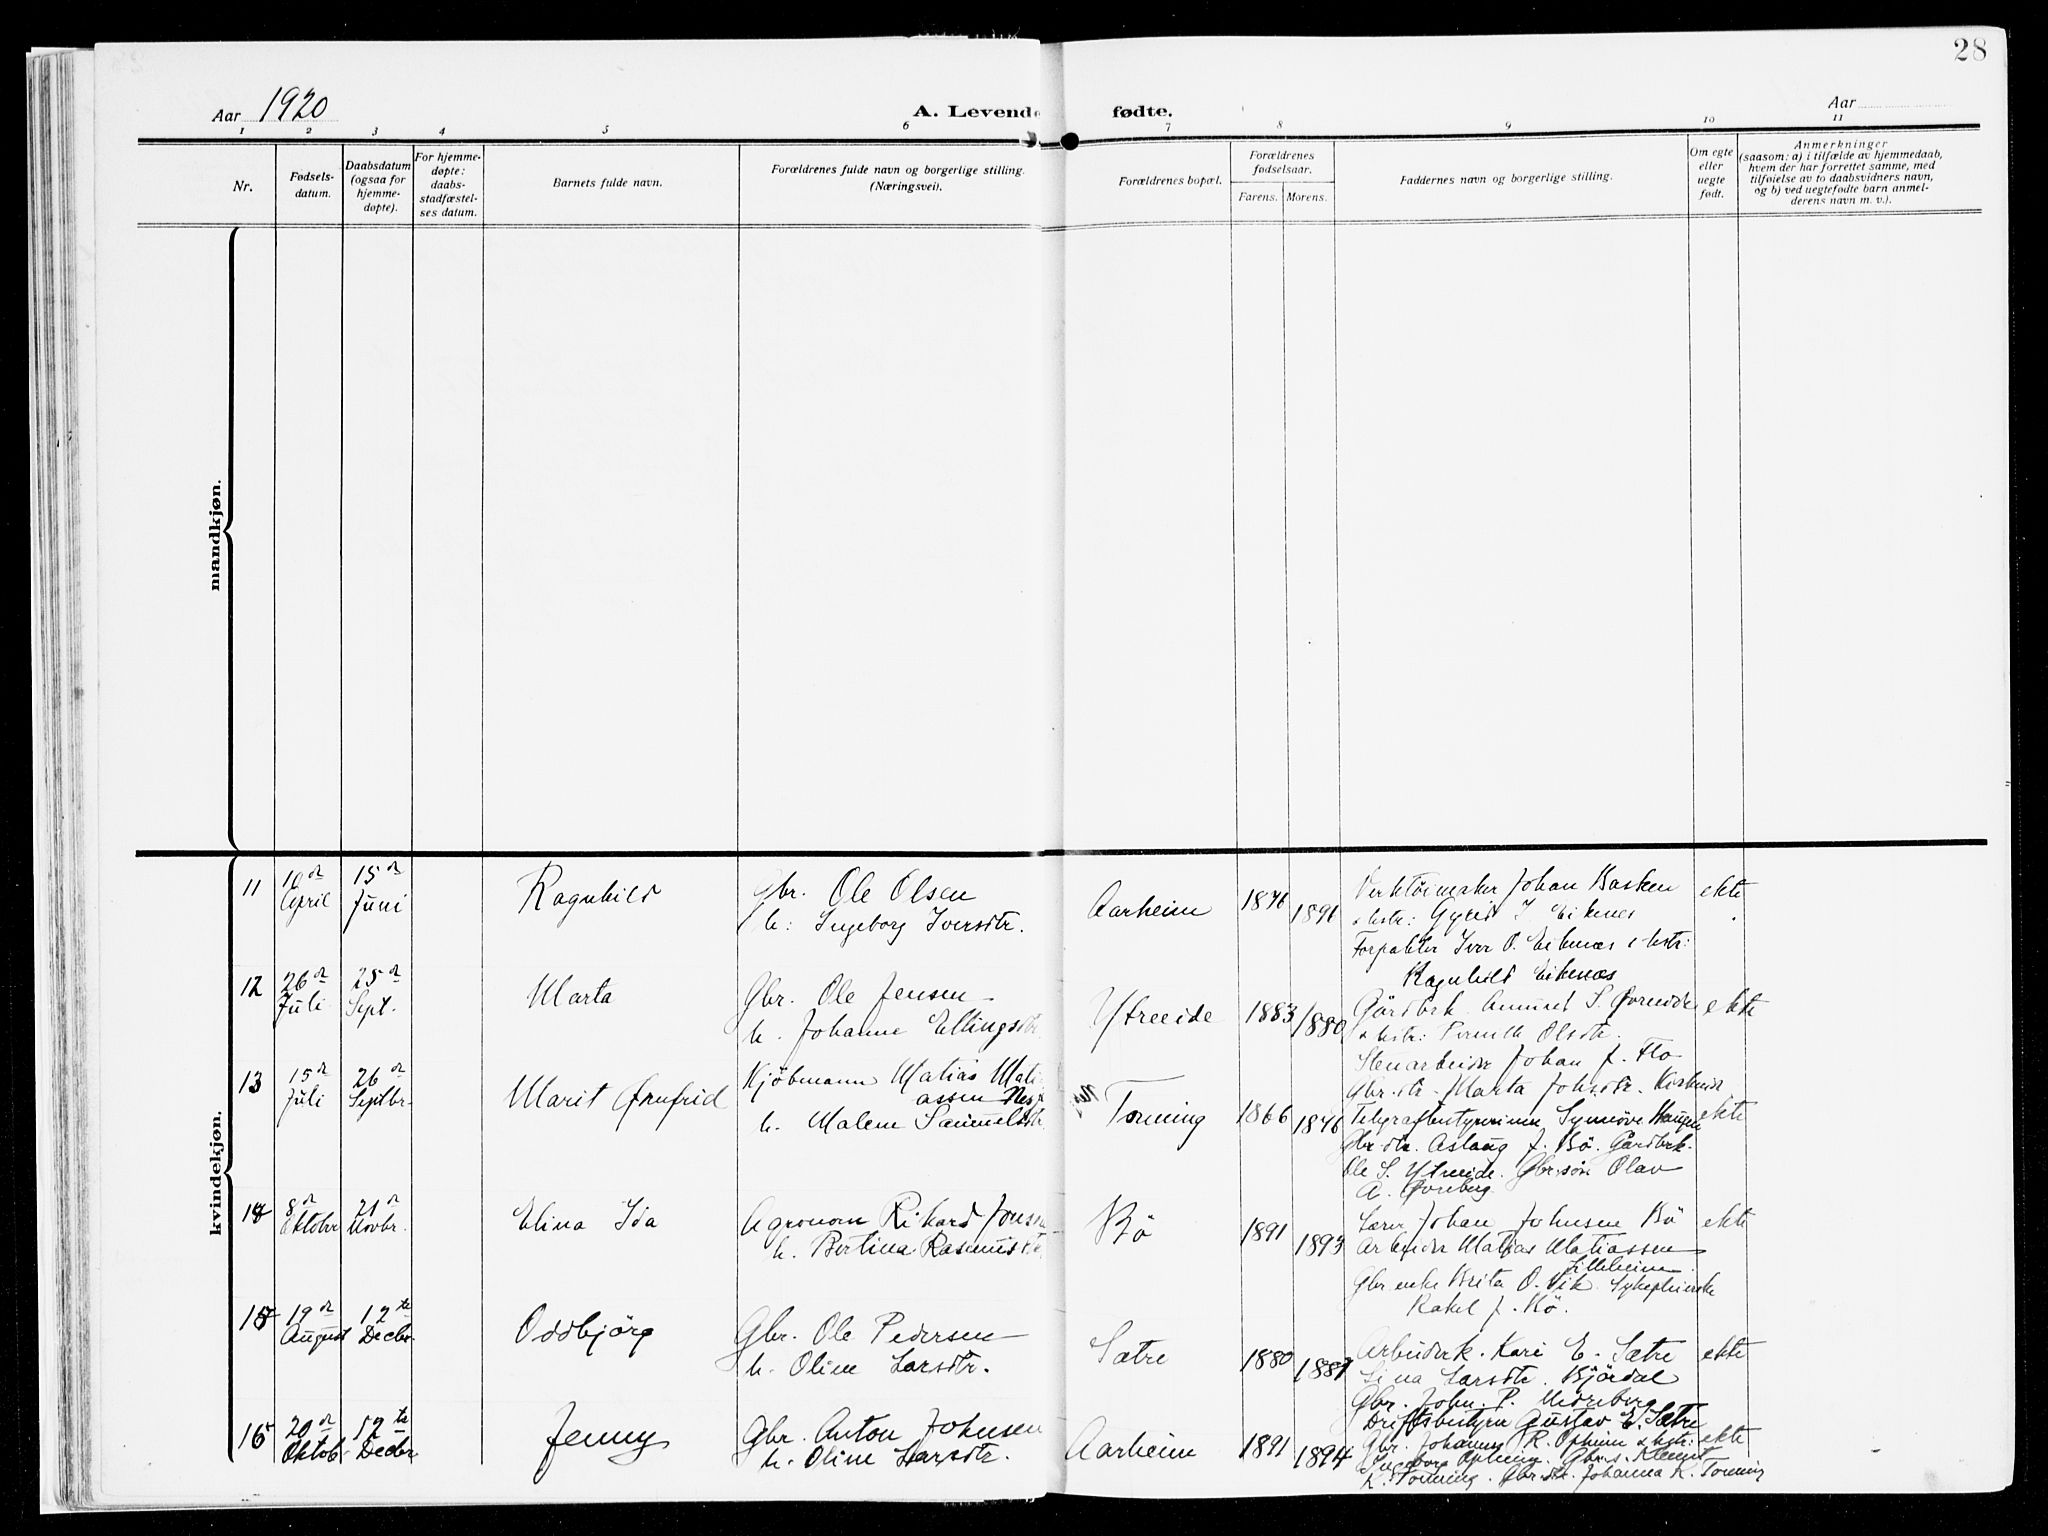 28
Aar 1920
A. Levende fødte.
Aar
1 2 3 4 5 6 7 8 9 10 11
Nr.
Fødselsdatum.
Daabsdatum (ogsaa for hjemmedøpte).
For hjemmedøpte: daabsstadfæstelses datum.
Barnets fulde navn.
Forældrenes fulde navn og borgerlige stilling. (Næringsvei).
Forældrenes bopæl.
Forældrenes fødselsaar.
Farens. Morens.
Faddernes navn og borgerlige stilling.
Om egte eller uegte født.
Anmerkninger
(saasom: a) i tilfælde av hjemmedaab,
hvem der har forrettet samme, med
tilføielse av to daabsvidners navn,
og b) ved uegtefødte barn anmelderens navn m. v.).
mandkjøn.
kvindekjøn.
11 10de April 15de Juni Ragnhild
Gbr. Ole Olsen
h: Ingeborg Iversdtr.
Aarheim 1876 1891
Verktöimaker Johan Basken
& hstr: Gyrid I. Eiknes
Forpakter Iver O. Eiknæs & hstr:
Ragnhild Eiknæs
ekte
12 26de Juli 25de Sept. Marta
Gbr. Ole Jensen
h. Johanne Ellingsdtr
Ytreeide 1883 1880
Gårdbrk S.
& hstr: Pernille Olsdtr.
Stenarbeider Johan J. Flo
Gbr.dtr. Marta Johsdtr.
ekte
13 15de Juli 26de Septbr. Marit Ørnfrid
Kjöbmann Matias Matiassen Nesje
h. Malene Samuelsdtr.
Tonning 1866 1876
Telegrafbestyrerinne Synnöve Haugen
Gbr.dtr. Aslaug J. Bö. Gardbrk.
Ole S. Ytreeide. Gbr.sön Olav
A. Övreberg
ekte
14 8de Oktobr 21de Novbr. Elina Ida
Agronom Rikard Jonsen
h. Bertina Rasmusdtr
Bö 1891 1893
Lærer Johan Johnsen Bö
Arbeider Matias Matiassen
Lilleheim.
Gbr.enke Brita O. Vik. Sykepleierske
Rakel J. Bö.
ekte
15 19de August 12te Decbr. Oddbjörg
Gbr. Ole Pedersen
h. Oline Larsdtr.
Sætre 1880 1887
Arbeiderk. Kari E. Sætre
Lina Larsdtr. Björdal
Gbr. John. P.
Driftsbestyrer Gustav E. Sætre
ekte
16 20de Oktob. 12te Decbr Jenny
Gbr. Anton Johnsen
h. Oline Larsdtr.
Aarheim 1891 1894
Gbr. Johannes R. Opheim & hstr:
Ingeborg Opheim. Gbr.s. Klemet
K. Tonning. Gbr.dtr. Johanna K. Tonning
ekte